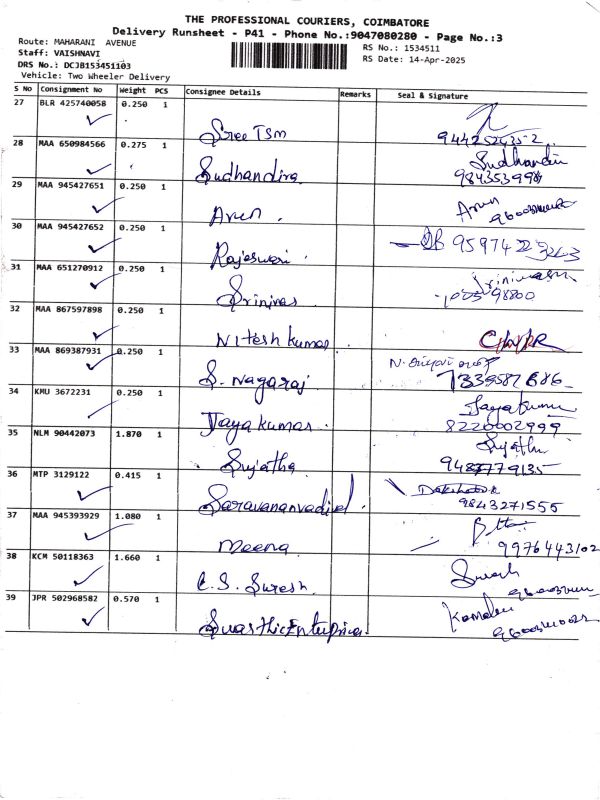 THE PROFESSIONAL COURIERS, COIMBATORE
Delivery Runsheet - P41 - Phone No.:9047080280 - Page No.:3
Route: MAHARANI AVENUE
RS No.: 1534511
Staff: VAISHNAVI
RS Date: 14-Apr-2025
DRS No.: DCJB153451103
Vehicle: Two Wheeler Delivery
S No Consignment No Weight PCS Consignee Details Remarks Seal & Signature
27 BLR 425740058 0.250 1
Sree TSM
28 MAA 650984566 0.275 1
Sudhandira Sudhandira
29 MAA 945427651 0.250 1
Arun Arun
30 MAA 945427652 0.250 1
Rajeswari
31 MAA 651270912 0.250 1
Srinivas
32 MAA 867597898 0.250 1
Nitesh kumar
33 MAA 869387931 0.250 1
S. Nagaraj
34 KMU 3672231 0.250 1
Jayakumar Jayakumar
8220002999
35 NLM 90442073 1.870 1
Sujatha Sujatha
36 MTP 3129122 0.415 1
Saravananvadivel
9843271555
37 MAA 945393929 1.080 1
Meena
9976443102
38 KCM 50118363 1.660 1
C.S. Suresh
39 JPR 502968582 0.570 1
Swasthic Enterprices